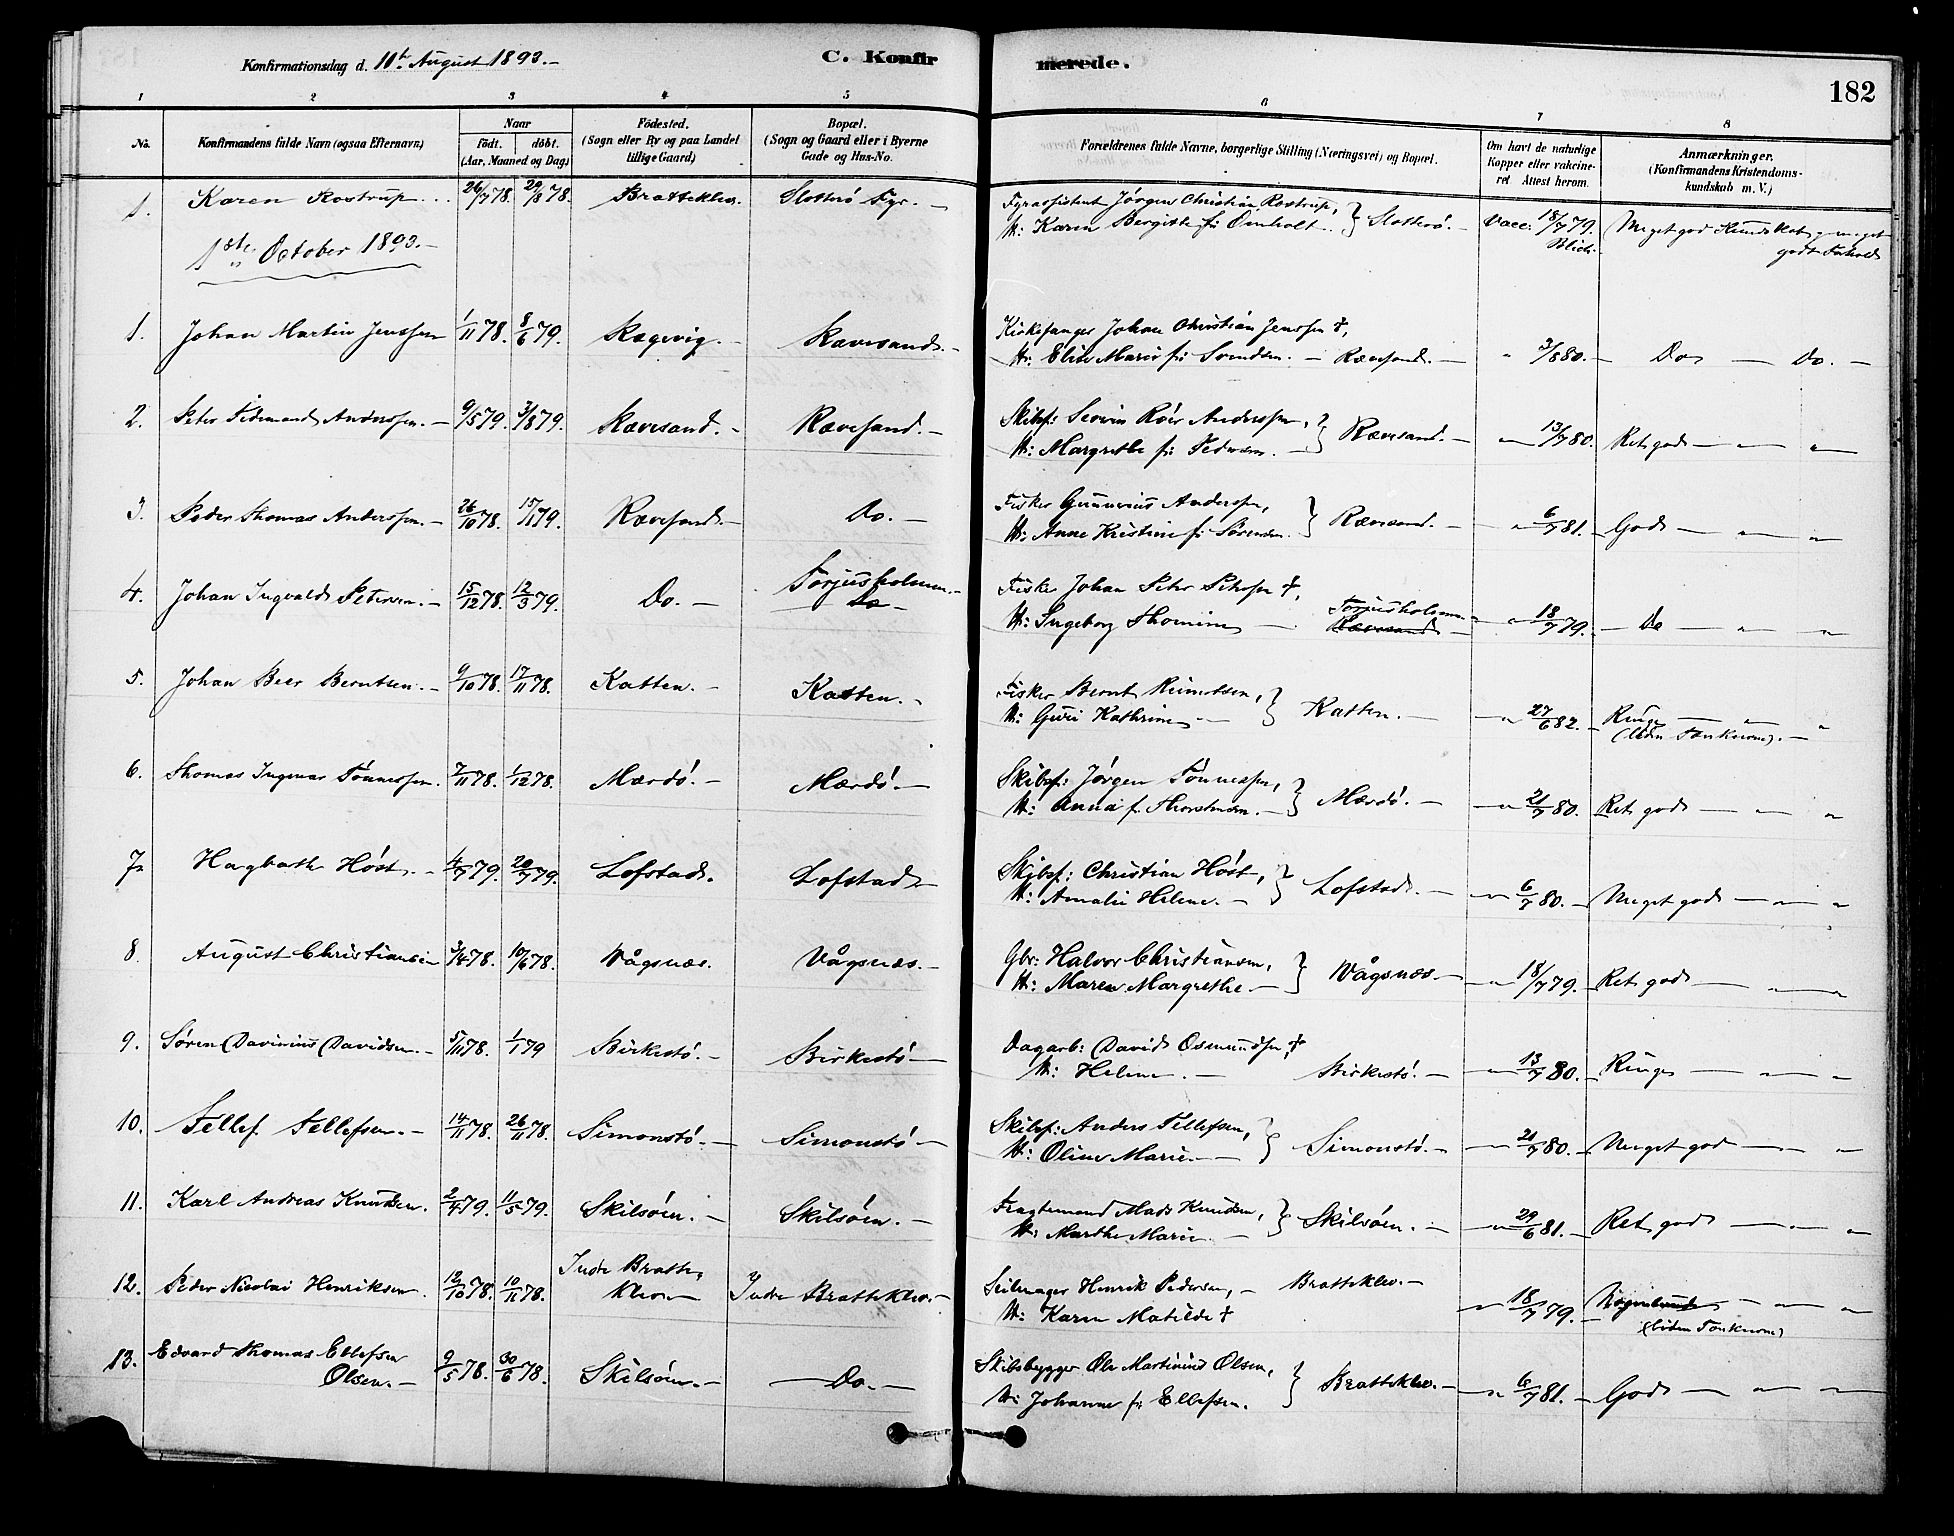 Konfirmationsdag d. 11te August 1893.-
C. Konfirmerede.
182
1 2 3 4 5 6 7 8
No. Konfirmandens fulde Navn (ogsaa Efternavn) Naar Födt. döbt. (Aar, Maaned og Dag) Födested. (Sogn eller By og paa Landet tillige Gaard) Bopæl. (Sogn og Gaard eller i Byerne Gade og Hus-No. Forældrenes fulde Navne, borgerlige Stilling (Næringsvei) og Bopæl. Om havt de naturlige Kopper eller vakcineret. Attest herom. Anmærkninger. (Konfirmandens Kristendomskundskab m. V.)
1. Karen Rostrup 26/7 78. 29/8 78. Bratteklev. Slotterö Fyr.- Fyrassistent Jörgen Christian Rostrup, H: Karen Bergitte f: Omholt.- } Slotterö.- Vacc: 18/7 79. Meget god Kundskab, meget godt Forhold
1ste October 1893.-
1. Johan Martin Jenssen 1/11 78. 8/6 79. Kægevig.- Rævesand.- Johan Christian Jenssen †, H: Elise Marie f: Svendsen.- Rævesand.- " 3/8 80.- Do — Do.-
2. Peter Ferdinand Anderssen.- 9/5 79. 3/8 79. Rævesand.- Rævesand.- Skibsf: Severin Röer Anderssen, H: Margrethe f: Pedersen.- } Rævesand.- " 13/7 80. Ret god — "
3. Peder Thomas Anderssen.- 26/10 78. 15/11 79. Rævesand.- Do.- Fisker Gunerius Anderssen, H: Anne Kristine f: Sörensen. } Rævesand.- " 6/7 81. God — " "
4. Johan Ingvald Petersen.- 15/12 78. 12/3 79. Do.- Torjusholmen.- Do- Fisker Johan Peter Petersen †, H: Ingeborg Thomine — Torjusholmen Rævesand.- " 18/7 79. - Do — " "
5. Johan Beer Berntsen.- 9/10 78. 17/11 78. Katten.- Katten.- Fisker Bernt H: Guri Kathrine.- } Katten.- " 27/6 82. Ringe (liden Tænkeevne).- "
6. Thomas Ingemar Tönnessen. 7/11 78. 1/12 78. Mærdö.- Mærdö.- Skibsf: Jörgen Tönnessen, H: Anna f. Thorstensen.- } Mærdö.- " 21/7 80. Ret god — "
7. Hagbarth Höst.- 4/7 79. 20/7 79. Lofstad. Lofstad.- Skibsf: Christian Höst, H: Amalie Helene.- } Lofstad.- " 6/7 80.- Meget god — " "
8. August Christiansen 3/4 78. 10/6 78. Vågsnæs. Vågsnæs.- Gbr: Halvor Christiansen, H: Maren Margrethe.- } Vågsnæs.- " 18/7 79. Ret god — " "
9. Sören Davinius Davidsen.- 5/11 78. 1/1 79 Birkestö.- Birkestö- Dagarb: David Osmundsen † H: Helene.- Birkestö.- " 13/7 80.- Ringe — " "
10. Tellef Tellefsen.- 14/11 78. 26/11 78. Simonstö.- Simonstö- Skibsf: Anders Tellefsen, H: Oline Marie.- } Simonstö.- " 21/7 80.- Meget god — "
11. Karl Andreas Knudsen. 2/4 79. 11/5 79. Skilsöen.- Skilsöen.- Fragtemand Mads Knudsen, H: Marthe Marie.- } Skilsöen.- " 29/6 81.- Ret god — "
12. Peder Nicolai Henriksen. 12/10 78. 10/11 78. Indre Bratteklev- Indre Bratteklev.- Seilmager Henrik Pedersen,- H: Karen Matilde † Bratteklev.- " 18/7 79. (liden Tænkeevne) - " "
13. Edvard Thomas Ellefsen Olsen.- 9/5 78. 30/6 78. Skilsöen.- — Do.- Skibsbygger Ole Martinius Olsen, H: Johanne f: Ellefsen. } Bratteklev.- " 6/7 81. God — " "